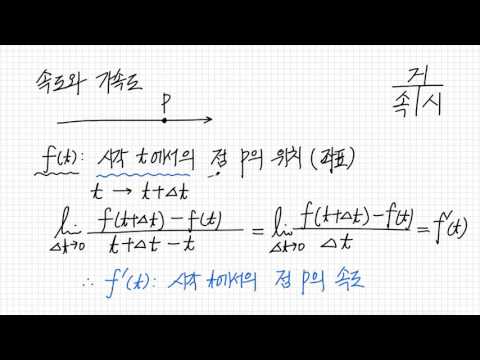 속도와 가속도
P
거
속 시
f(t): 시각 t에서의 점 P의 위치 (좌표)
t → t+Δt
lim Δt→0 f(t+Δt)-f(t) / t+Δt-t = lim Δt→0 f(t+Δt)-f(t) / Δt = f'(t)
∴ f'(t): 시각 t에서의 점 P의 속도